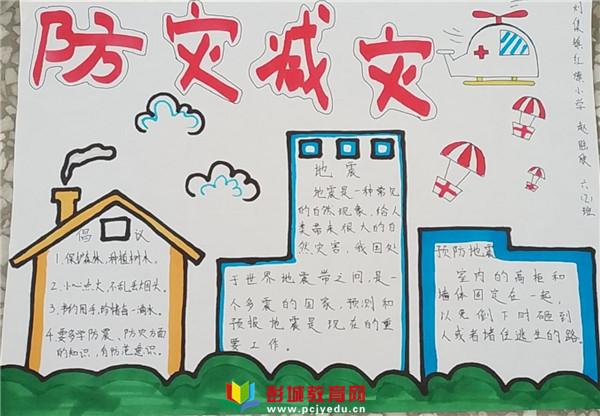 防灾减灾
刘集镇红旗小学
六(2)班
倡议
1.保护森林、种植树木。
2.小心点火、不乱丢烟头。
3.节约用水、珍惜每一滴水。
4.要多学防震、防灾方面
的知识，有防范意识。
地震
地震是一种常见
的自然现象，给人
类带来很大的自
然灾害，我国处
于世界地震带之间，是一
个多震的国家，预测和
预报地震是现在的重
要工作。
预防地震
室内的高柜和
墙体固定在一起，
以免倒下时砸到
人或者堵住逃生的路。
彭城教育网
www.pcjyedu.cn